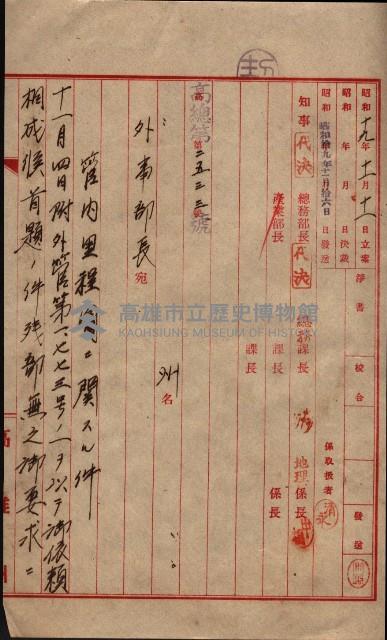 昭和十九年十一月十一日發立案
昭和 年 月 日決裁
昭和拾九年十一月拾六日發送
淨書
校合
發送
知事 代決
總務部長 代決
產業部長
總務課長
課長
課長
係取扱者 清永
地理係長
係長
高總第二五二三號
外事部長宛
州名
管內里程 ニ關スル件
十一月四日附外管第一七七三号ノ一ヲ以テ御依頼
相成候首題ノ件残部無之御要求ニ
高雄州
高雄市立歷史博物館
KAOHSIUNG MUSEUM OF HISTORY